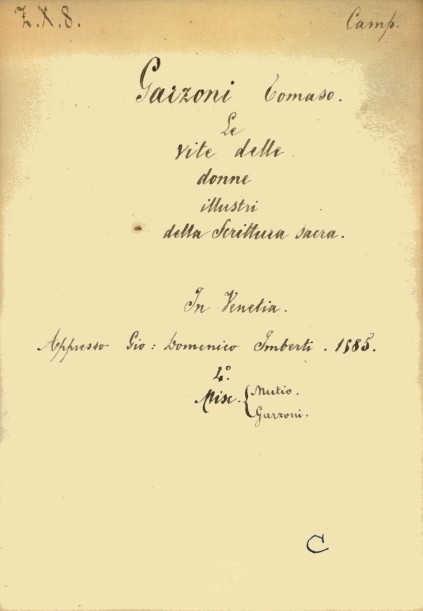 Z.X.8. Camp.
Garzoni Tomaso.
Le
vite delle
donne
illustri
della Scrittura sacra.
In Venetia.
Appresso Gio: Domenico Imberti. 1585.
4.º
Misc. { Mutio.
Garzoni.
C